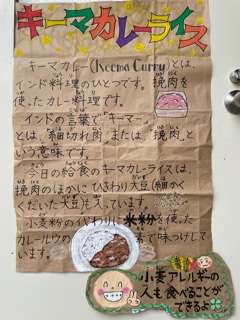 キーマカレーライス
キーマカレー(Keema Curry)とは、
インド料理のひとつです。挽肉を
使ったカレー料理です。
インドの言葉で「キーマー」
とは、「細切れ肉」または「挽肉」と
いう意味です。
今日の給食のキーマカレーライスは、
挽肉のほかにひきわり大豆(細かく
くだいた大豆)が入っています。
小麦粉の代わりに米粉を使った
カレールウの で味つけして
います。
小麦アレルギーの
人も食べることが
できるよ